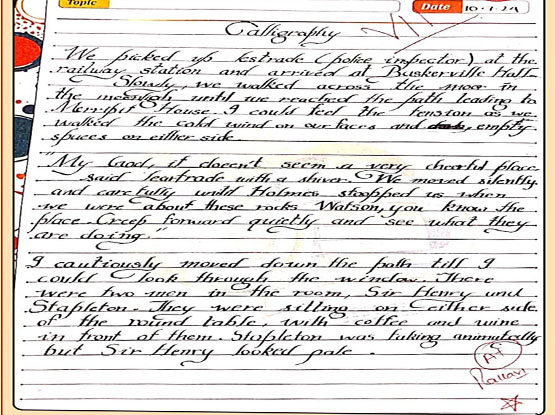 Topic
Date 10.1.24
VII
Calligraphy
We picked up lestrade (police inspector) at the
railway station and arrived at Buskerville Hall.
Slowly, we walked across the moor in
the moonligh until we reached the path leading to
Merripit House. I could feel the tension as we
walked the cold wind on our faces and empty
spaces on either side.
"My God, it doesn't seem a very cheerful place
said leartrade with a shiver. We moved silently
and carefully until Holmes stopped us when
we were about these rocks. Watson, you know the
place. Creep forward quietly and see what they
are doing."
I cautiously moved down the path till I
could look through the window. There
were two men in the room, Sir Henry and
Stapleton. They were sitting on either side
of the round table, with coffee and wine
in front of them. Stapleton was talking animatedly
but Sir Henry looked pale.
A+
Pallavi